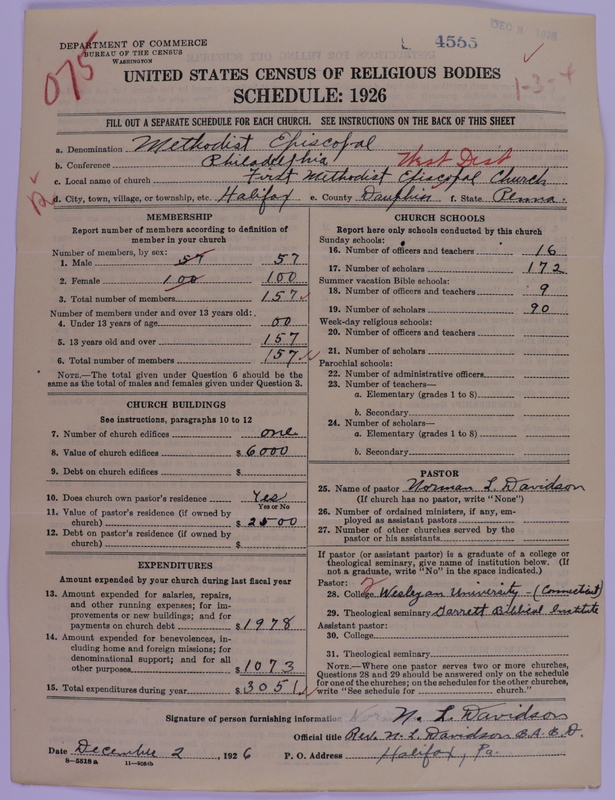 DEPARTMENT OF COMMERCE
BUREAU OF THE CENSUS
WASHINGTON
4555
DEC
075
1-3-4
UNITED STATES CENSUS OF RELIGIOUS BODIES
SCHEDULE: 1926
FILL OUT A SEPARATE SCHEDULE FOR EACH CHURCH. SEE INSTRUCTIONS ON THE BACK OF THIS SHEET
a. Denomination Methodist Episcopal
b. Conference Philadelphia West Dist
c. Local name of church First Methodist Episcopal Church
d. City, town, village, or township, etc. Halifax e. County Dauphin f. State Penna.
MEMBERSHIP
Report number of members according to definition of
member in your church
Number of members, by sex:
1. Male 57 57
2. Female 100 100
3. Total number of members 157
Number of members under and over 13 years old:
4. Under 13 years of age 00
5. 13 years old and over 157
6. Total number of members 157
NOTE.—The total given under Question 6 should be the
same as the total of males and females given under Question 3.
CHURCH BUILDINGS
See instructions, paragraphs 10 to 12
7. Number of church edifices one
8. Value of church edifices $ 6000
9. Debt on church edifices $
10. Does church own pastor's residence Yes
Yes or No
11. Value of pastor's residence (if owned by
church) $ 2500
12. Debt on pastor's residence (if owned by
church) $
EXPENDITURES
Amount expended by your church during last fiscal year
13. Amount expended for salaries, repairs,
and other running expenses; for im-
provements or new buildings; and for
payments on church debt $ 1978
14. Amount expended for benevolences, in-
cluding home and foreign missions; for
denominational support; and for all
other purposes $ 1073
15. Total expenditures during year $ 3051
CHURCH SCHOOLS
Report here only schools conducted by this church
Sunday schools:
16. Number of officers and teachers 16
17. Number of scholars 172
Summer vacation Bible schools:
18. Number of officers and teachers 9
19. Number of scholars 90
Week-day religious schools:
20. Number of officers and teachers
21. Number of scholars
Parochial schools:
22. Number of administrative officers
23. Number of teachers—
a. Elementary (grades 1 to 8)
b. Secondary
24. Number of scholars—
a. Elementary (grades 1 to 8)
b. Secondary
PASTOR
25. Name of pastor Norman L. Davidson
(If church has no pastor, write "None")
26. Number of ordained ministers, if any, em-
ployed as assistant pastors
27. Number of other churches served by the
pastor or his assistants
If pastor (or assistant pastor) is a graduate of a college or
theological seminary, give name of institution below. (If
not a graduate, write "No" in the space indicated.)
Pastor: 2
28. College Wesleyan University - (Connecticut)
29. Theological seminary Garrett Biblical Institute
Assistant pastor:
30. College
31. Theological seminary
NOTE.—Where one pastor serves two or more churches,
Questions 28 and 29 should be answered only on the schedule
for one of the churches; on the schedules for the other churches,
write "See schedule for church."
Signature of person furnishing information N. L. Davidson
Official title Rev. N. L. Davidson B.A. B.D.
Date December 2, 1926 P. O. Address Halifax, Pa.
8-5518a